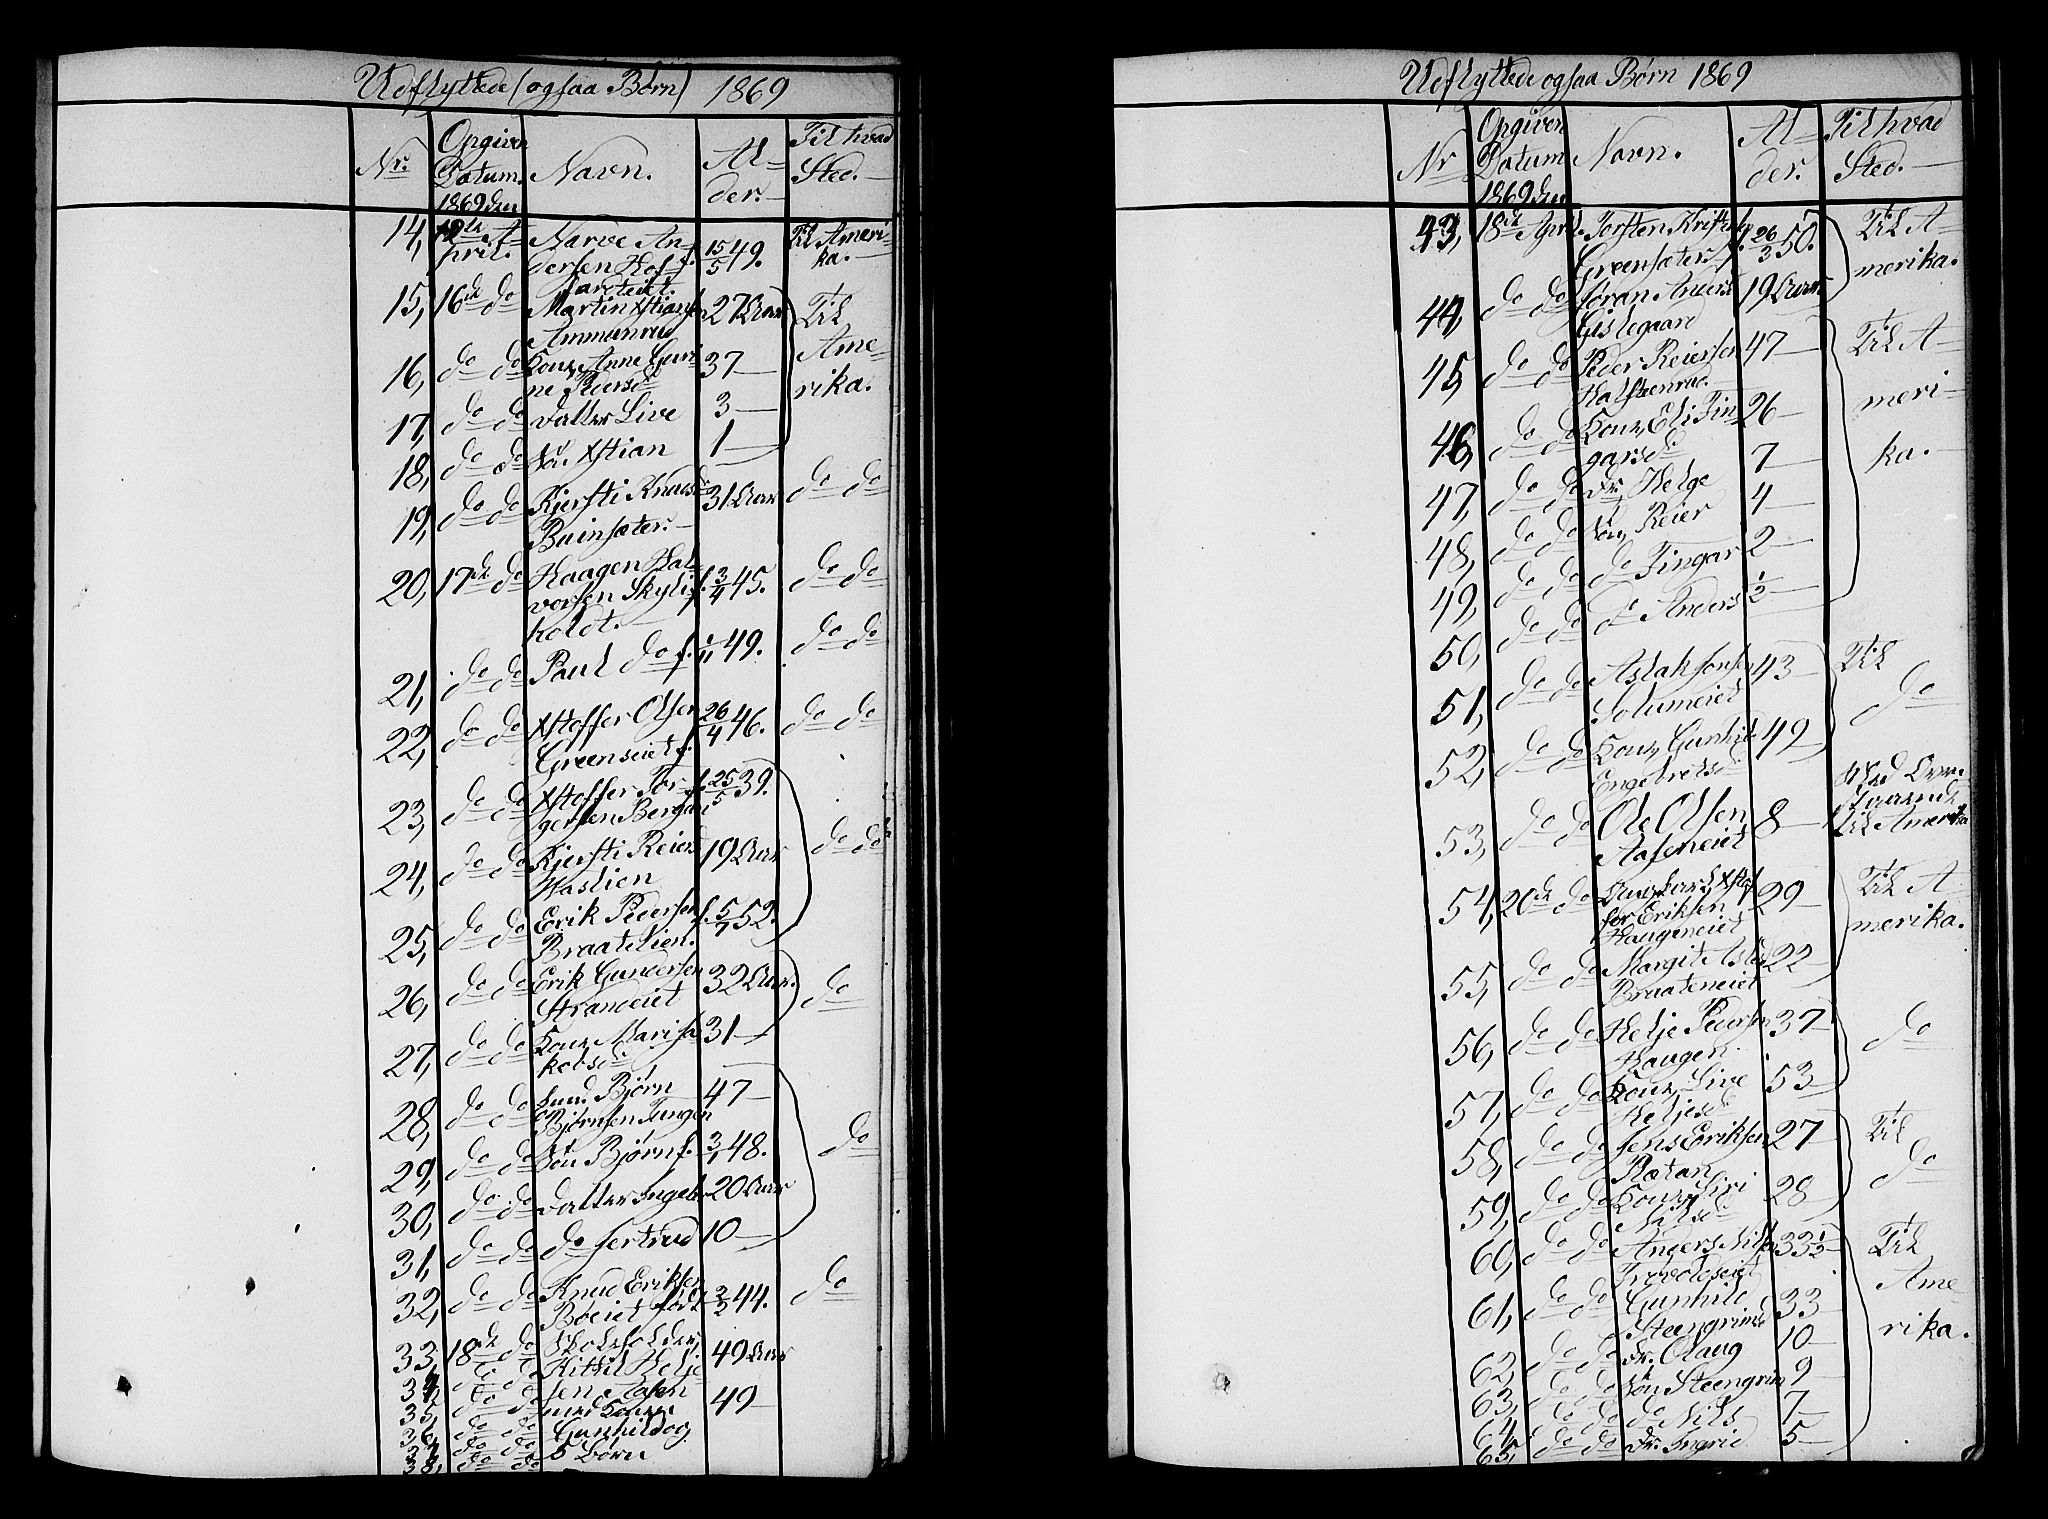 Udflyttede (ogsaa Børn) 1869
Nr. Opgiven Datum. 1869 den Navn. Alder. Til hvad Sted.
14, April. Narve Andersen Hof f. 15/5 49. Til Amerika.
15, 16de do Martin Xstians Ammunrud 27 Aar Til Amerika.
16, do do Kone Anne Guri- 37 —
17, do do Datter Live 3 —
18, do do Søn Xstian 1 —
19, do do Kjersti Knudsd Buinsæter. 31 Aar do do
20, 17de do Haagen Halvorsen Skylis-
koldt. — f. 3/4 45. do do
21, do do Paul do f. 1/11 49. do do
22, do do Xstoffer Olsen
Greenseiet f. 26/4 46. do do
23, do do Xstoffer Tor-
gersen f. 25/5 39.
24, do do Kjersti Reiersd
Haslien 19 Aar do do
25, do do Erik Pedersen
Braatelien. f. 5/7 52.
26, do do Erik Gundersen
Strandeiet 32 Aar. do
27, do do Kone Mari Ja-
kobsd 31 —
28, do do Bjørn
Bjørnsen Tungen 47 —
29, do do Søn Bjørn f. 3/1 48. do
30, do do Datter Ingebor 20 Aar
31, do do do Jertrud 10 —
32, do do Knud Eriksen
Bøeiet født 2/2 44. do
33, 18de do Skoleholder 49 Aar
34, do do Kittil Helje-
35, do do sen Aasen
36, do do med Kone 49 —
37, do do Gunhild og
38, do do 5 Børn
Udflyttede ogsaa Børn 1869
Nr Opgiven Datum 1869 den Navn. Alder. Til hvad Sted. —
43, 18de April. Torsten Kristens
Greensæter f. 26/3 50. Til Amerika.
44, do do Gislegaard 19 Aar
45, do do Peder Reiersen
Halsteenrud. 47 — Til Amerika. —
46, do do Kone Eli Fin-
garsd 26 —
47, do do Dr. Helge 7 —
48, do do Søn Reier 4 —
49, do do do Fingar 2 —
50, do do do Anders 1/2 —
51, do do Aslak Jonsen
Solumeiet 43 — Til do
52, do do Kone Gunhild
Engebretsd 49 —
53, do do Ole Olsen
Aaseneiet 8 — Til Amerika
54, 20de do Xstof-
fer Eriksen
Haugeneiet 29 — Til Amerika.
55, do do Margit Aslesd
Braateneiet 22 —
56, do do Helje Pedersen
Haugen. 37 — do
57, do do Kone Live
Heljesd 53 —
58, do do Jens Eriksen
Rotan 27 — Til do
59, do do Kone Siri
Nilsd 28 —
60, do do Anders Nils 33 1/2 — Til Amerika.
61, do do Gunhild
Steengrimsd 33
62, do do Dr. Olaug 10 —
63, do do Søn Steengrim 9 —
64, do do do Nils 7 —
65, do do Dr. Ingrid 5 —